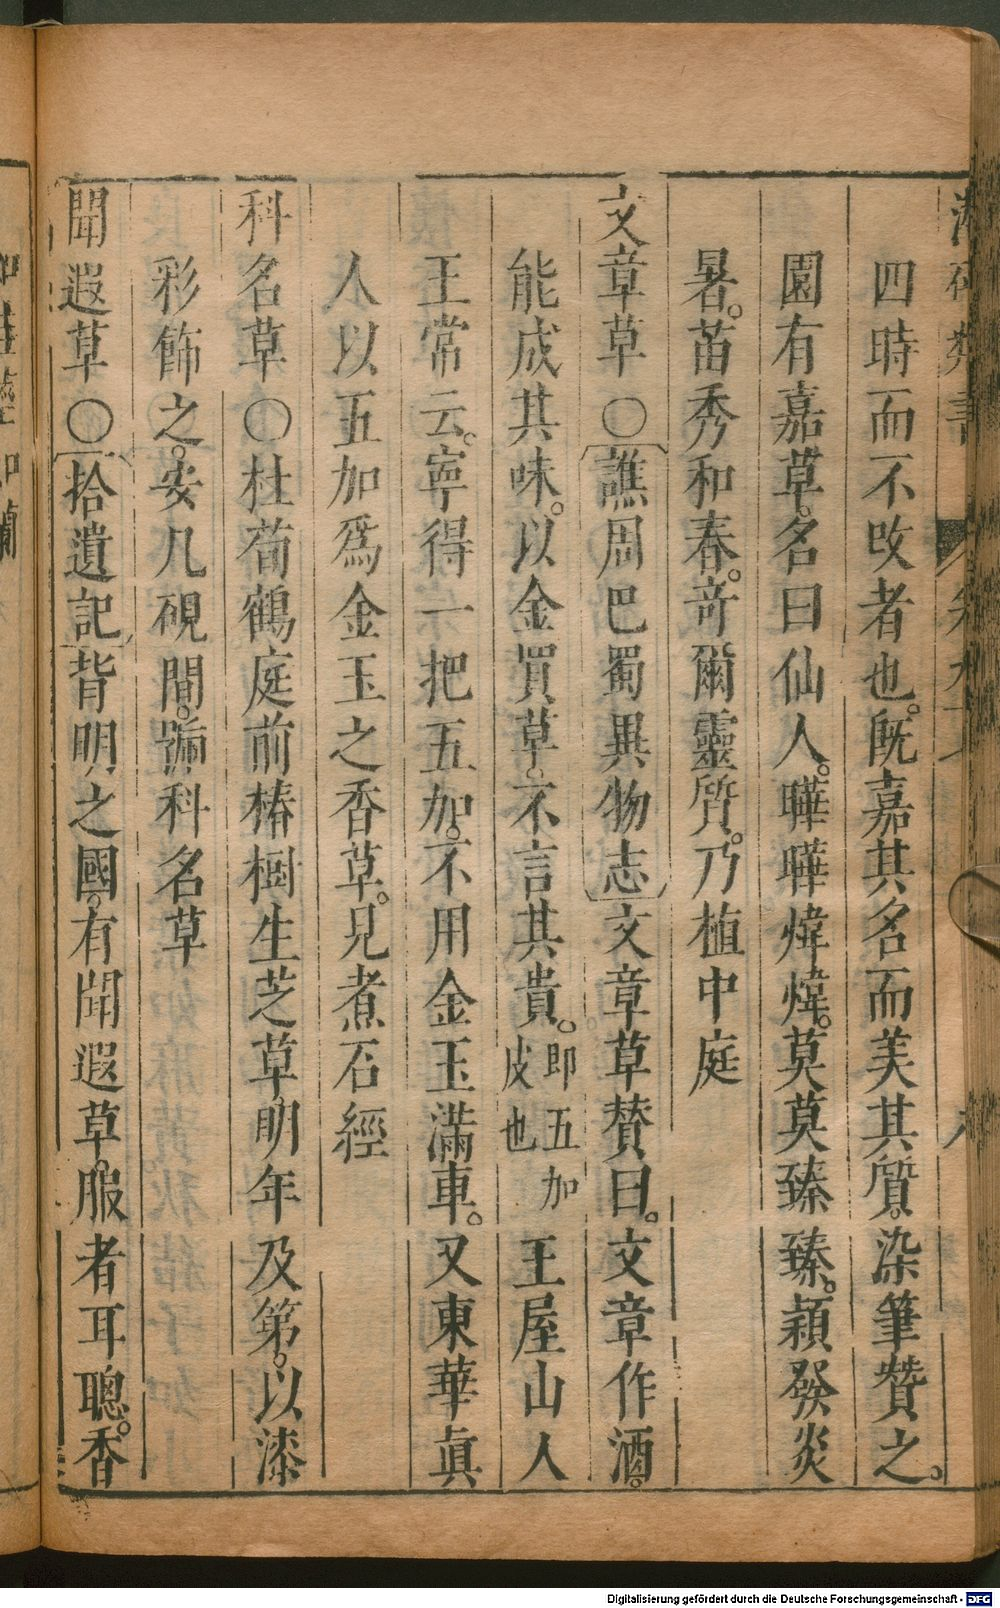 四時而不攺者也。旣嘉其名而美其質。染筆贊之。
園有嘉草。名曰仙人。曄曄煒煒。莫莫臻臻。穎發炎
暑。苗秀和春。竒爾靈質。乃植中庭
文章草〇譙周巴蜀異物志文章草賛曰。文章作酒。
能成其味。以金買草。不言其貴。即五加皮也 王屋山人
王常云。寧得一把五加。不用金玉滿車。又東華眞
人以五加爲金玉之香草。見煮石經
科名草〇杜荀鶴庭前椿樹生芝草。明年及第。以漆
彩飾之。安几硯間。號科名草
聞遐草〇拾遺記背明之國。有聞遐草。服者耳聰。香
Digitalisierung gefördert durch die Deutsche Forschungsgemeinschaft - DFG